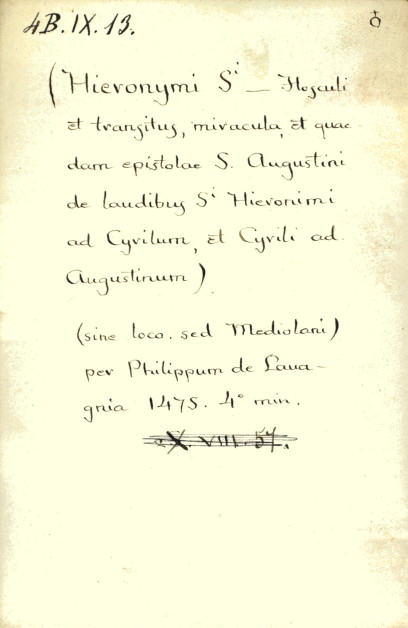 4B.IX.13.
(Hieronymi Sⁱ — Flosculi
et transitus, miracula, et quae
dam epistolae S. Augustini
de laudibus Sⁱ Hieronimi
ad Cyrilum, et Cyrili ad
Augustinum)
(sine loco. sed Mediolani)
per Philippum de Lava-
gnia 1475. 4° min.
X. VIII. 57.